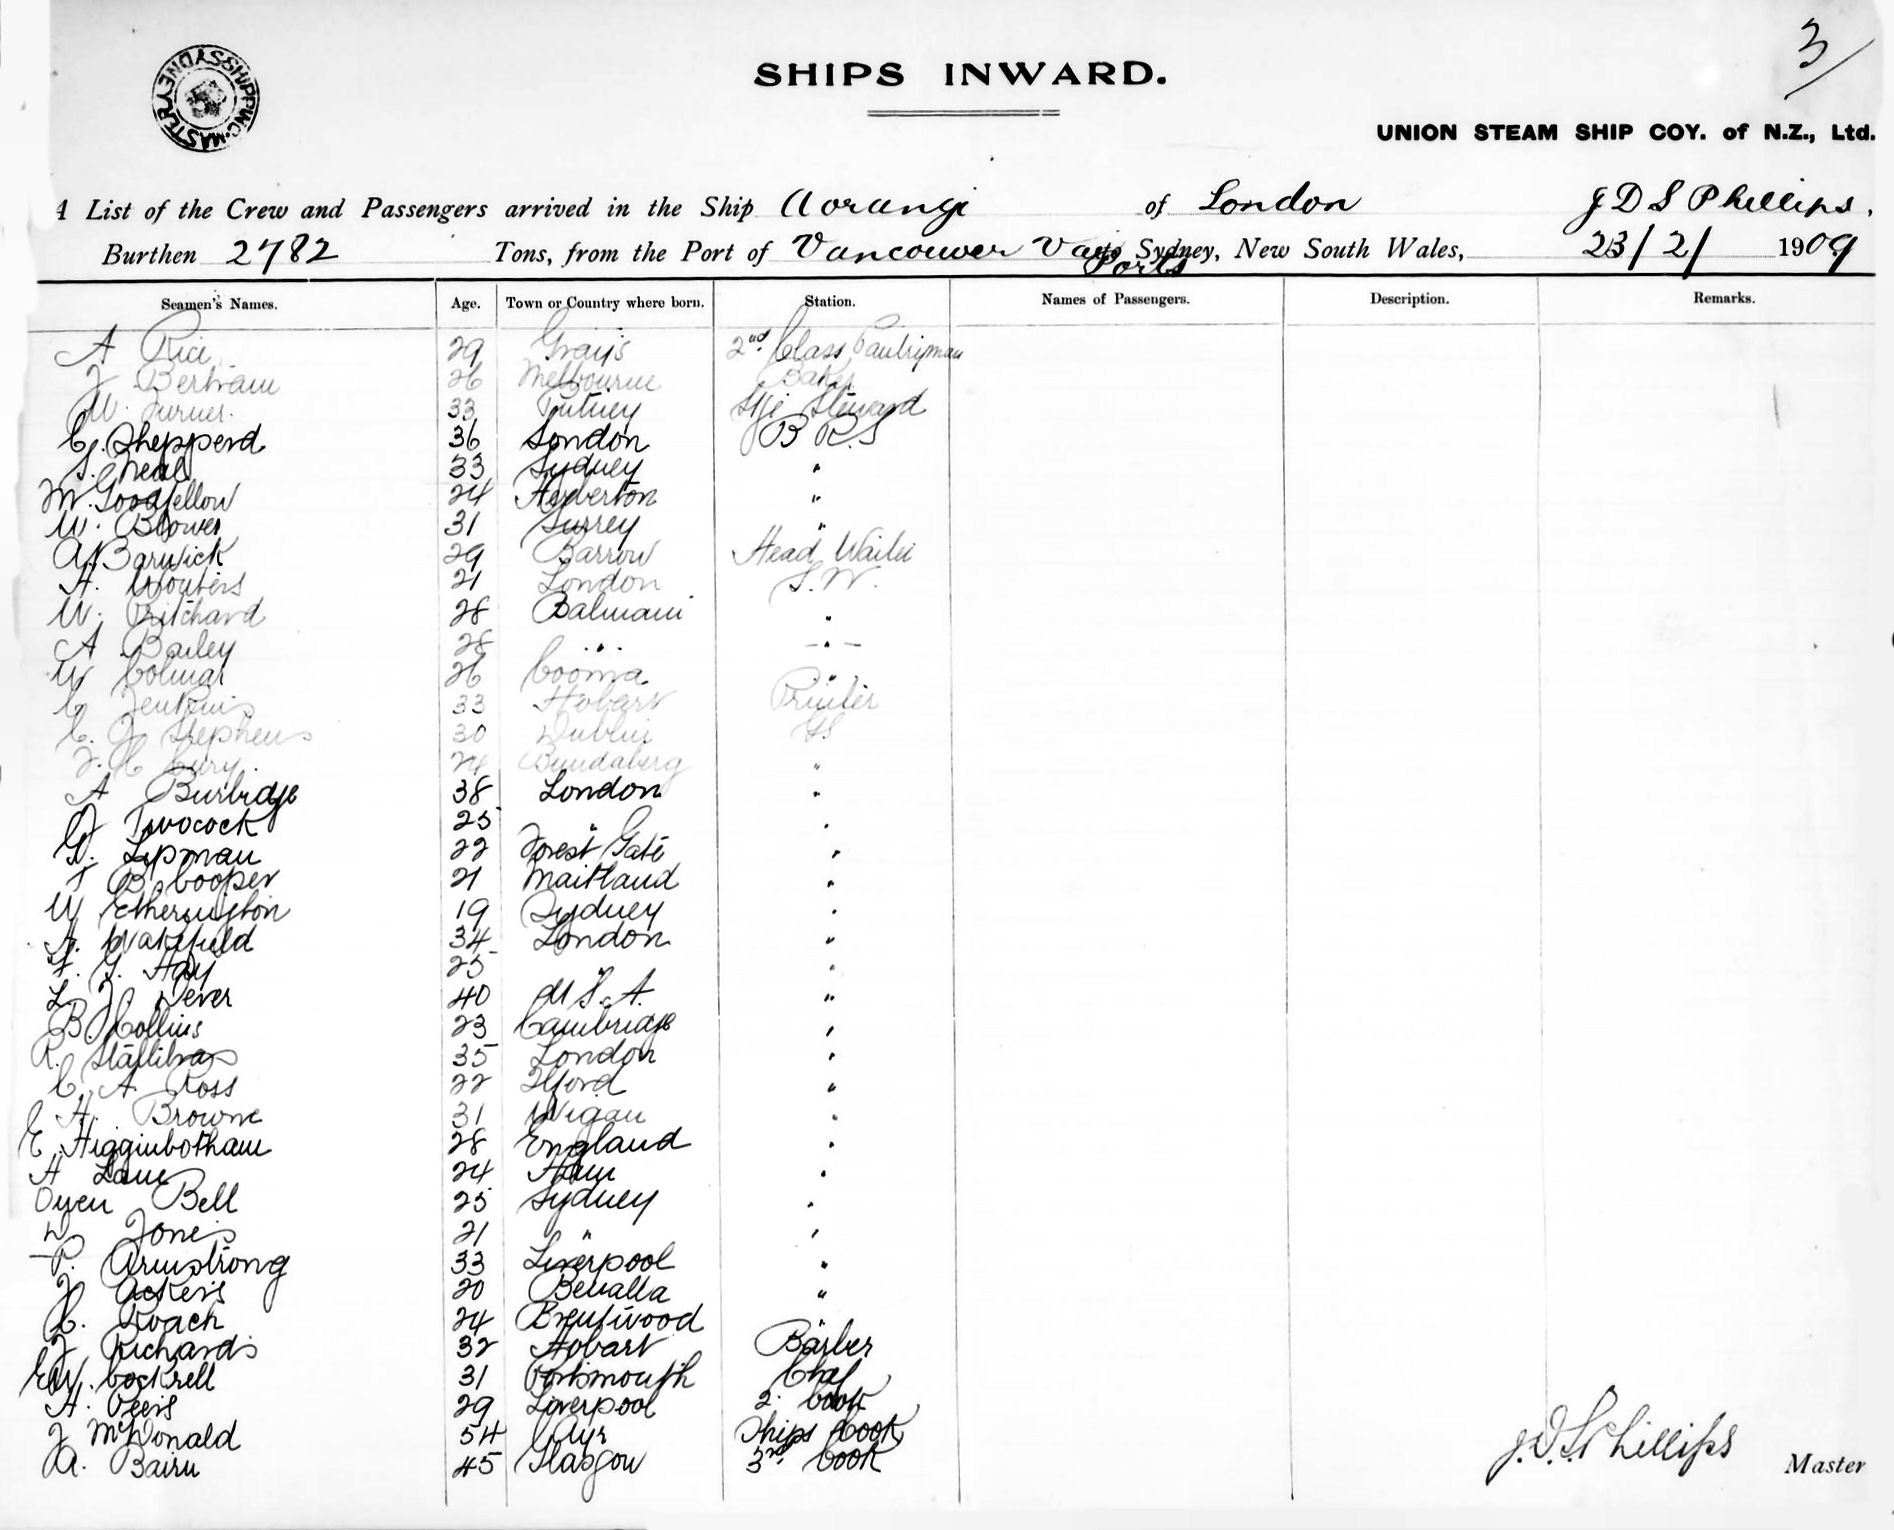 3/
SHIPPING MASTER SYDNEY
SHIPS INWARD.
UNION STEAM SHIP COY. of N.Z., Ltd.
A List of the Crew and Passengers arrived in the Ship Aorangi of London J D S Phillips.
Burthen 2782 Tons, from the Port of Vancouver Via Ports to Sydney, New South Wales, 23/2/ 1909
Seamen's Names. Age. Town or Country where born. Station. Names of Passengers. Description. Remarks.
A Rice 29 Grays 2nd Class Pantryman
J Bertram 26 Melbourne Baker
W. Turner. 33 Putney Stge Steward
C. Shepperd 36 London B R S
S. Neal 33 Sydney "
M Goodfellow 24 Herberton "
W. Blower 31 Surrey "
A. Barwick 29 Barrow Head Waiter
A. Wouters 21 London S. W.
W. Pritchard 28 Balmain "
A Bailey 28 " "
W Colmar 26 Cooma "
C Jenkins 33 Hobart Printer
C. J Stephens 30 Dublin GS
J. C Cury. 24 Bundaberg "
A Burbidge 38 London "
J Twocock 25 " "
G. Lipman 22 Forest Gate "
F B Cooper 21 Maitland "
W Etherington 19 Sydney "
A. Wakefield 34 London "
F. G. Hay 25 " "
L. J. Dever 40 U S. A. "
B. Collins 23 Cambridge "
R. Stallibrass 35 London "
C. A. Ross 22 Ilford "
E A. Browne 31 Wigan "
E Higginbotham 28 England "
A Lane 24 Ham "
Owen Bell 25 Sydney "
D Jones 21 " "
P. Armstrong 33 Liverpool "
J Ackers 20 Benalla "
C. Roach 24 Brentwood "
J Richards 32 Hobart Barber
EW. Cockrell 31 Portsmouth Chef
A. Peers 29 Liverpool 2. Cook
J McDonald 54 Ayr Ships Cook
A. Bairn 45 Glasgow 3rd Cook
J.D.S Phillips Master